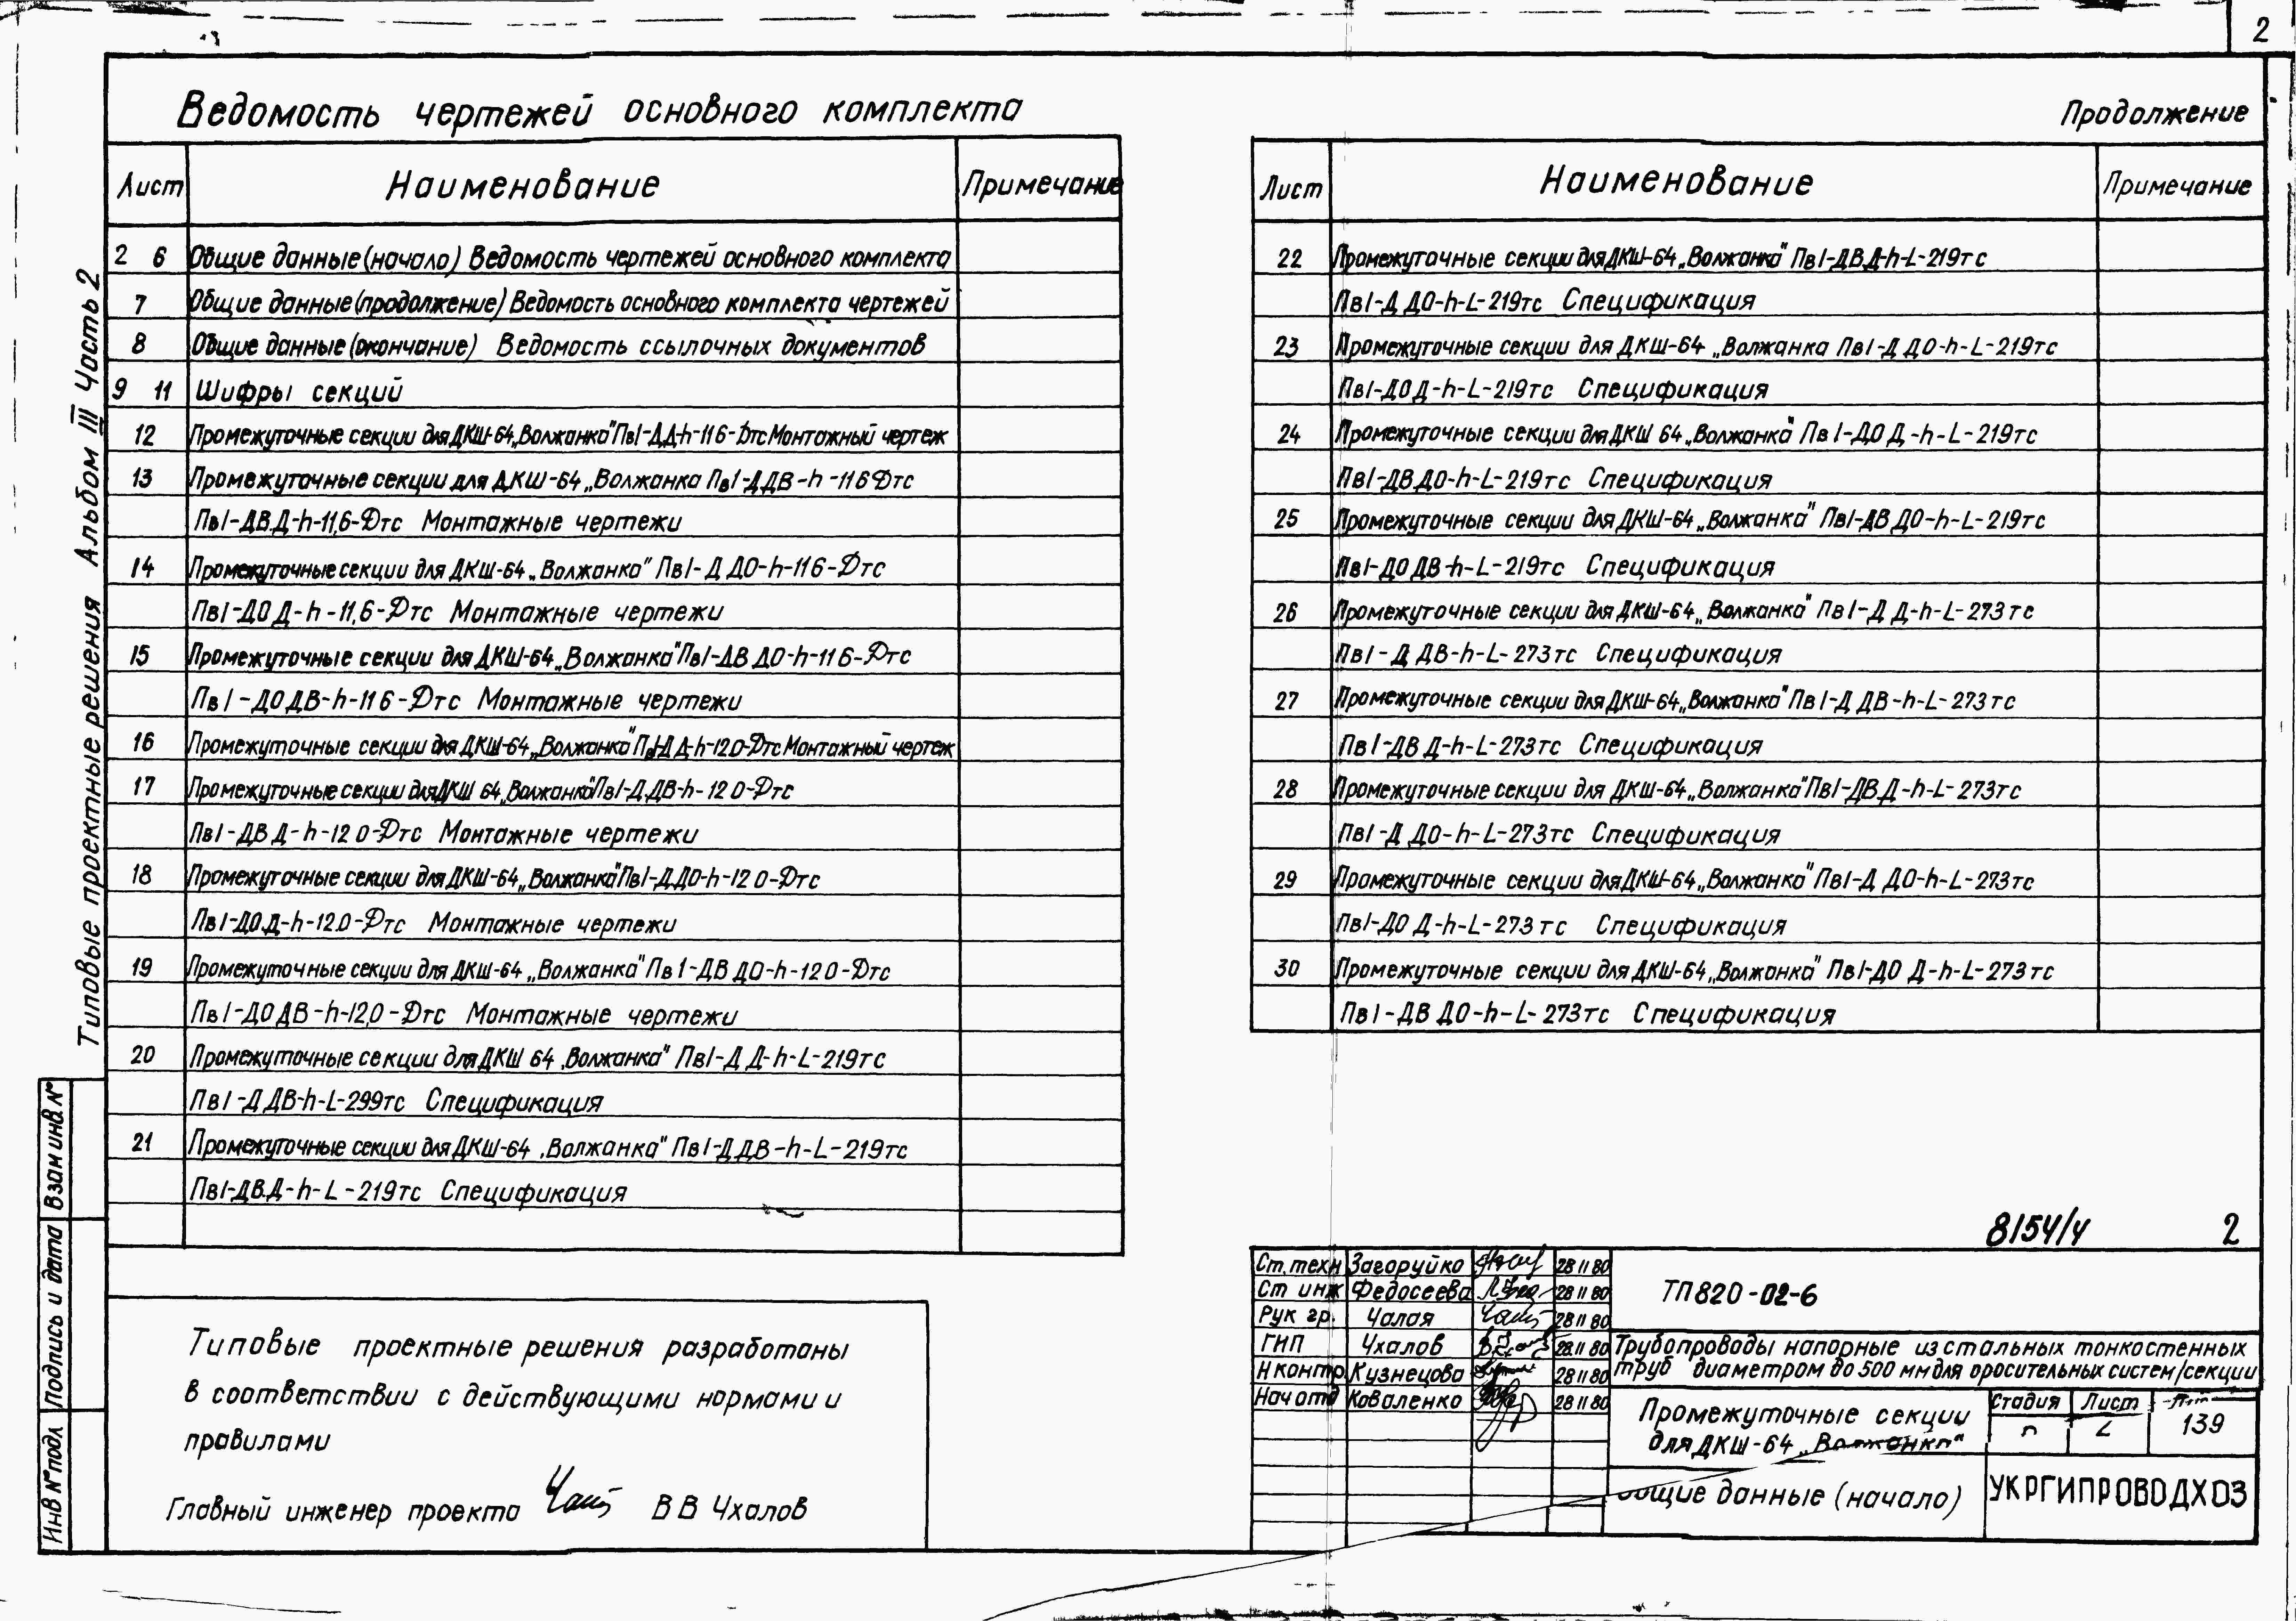 2
Ведомость чертежей основного комплекта
Лист Наименование Примечание
2 6 Общие данные (начало) Ведомость чертежей основного комплекта
7 Общие данные (продолжение) Ведомость основного комплекта чертежей
8 Общие данные (окончание) Ведомость ссылочных документов
9 11 Шифры секций
12 Промежуточные секции для ДКШ-64 „Волжанка" Пв1-Д.Д-h-11 6-Dтс Монтажный чертеж
13 Промежуточные секции для ДКШ-64 „Волжанка Пв1-Д ДВ-h-11 6 Dтс
Пв1-ДВ.Д-h-11,6-Dтс Монтажные чертежи
14 Промежуточные секции для ДКШ-64 „Волжанка" Пв1-Д ДО-h-11 6-Dтс
Пв1-ДО Д-h-11,6-Dтс Монтажные чертежи
15 Промежуточные секции для ДКШ-64 „Волжанка" Пв1-ДВ ДО-h-11 6-Dтс
Пв1-ДО ДВ-h-11 6-Dтс Монтажные чертежи
16 Промежуточные секции для ДКШ-64 „Волжанка" Пв1-Д Д-h-12.0-Dтс Монтажный чертеж
17 Промежуточные секции для ДКШ 64 „Волжанка" Пв1-Д.ДВ-h-12 0-Dтс
Пв1-ДВ Д-h-12 0-Dтс Монтажные чертежи
18 Промежуточные секции для ДКШ-64 „Волжанка" Пв1-Д.ДО-h-12 0-Dтс
Пв1-ДО.Д-h-12.0-Dтс Монтажные чертежи
19 Промежуточные секции для ДКШ-64 „Волжанка" Пв1-ДВ ДО-h-12 0-Dтс
Пв1-ДО ДВ-h-12,0-Dтс Монтажные чертежи
20 Промежуточные секции для ДКШ 64 „Волжанка" Пв1-Д Д-h-L-219тс
Пв1-Д ДВ-h-L-299тс Спецификация
21 Промежуточные секции для ДКШ-64 „Волжанка" Пв1-Д ДВ-h-L-219тс
Пв1-ДВ.Д-h-L-219тс Спецификация
Продолжение
Лист Наименование Примечание
22 Промежуточные секции для ДКШ-64 „Волжанка" Пв1-ДВ.Д-h-L-219тс
Пв1-Д ДО-h-L-219тс Спецификация
23 Промежуточные секции для ДКШ-64 „Волжанка Пв1-Д ДО-h-L-219тс
Пв1-ДО Д-h-L-219тс Спецификация
24 Промежуточные секции для ДКШ 64 „Волжанка" Пв1-ДО Д-h-L-219тс
Пв1-ДВ ДО-h-L-219тс Спецификация
25 Промежуточные секции для ДКШ-64 „Волжанка" Пв1-ДВ ДО-h-L-219тс
Пв1-ДО ДВ-h-L-219тс Спецификация
26 Промежуточные секции для ДКШ-64 „Волжанка" Пв1-Д Д-h-L-273тс
Пв1-Д ДВ-h-L-273тс Спецификация
27 Промежуточные секции для ДКШ-64 „Волжанка" Пв1-Д ДВ-h-L-273тс
Пв1-ДВ Д-h-L-273тс Спецификация
28 Промежуточные секции для ДКШ-64 „Волжанка" Пв1-ДВ.Д-h-L-273тс
Пв1-Д ДО-h-L-273тс Спецификация
29 Промежуточные секции для ДКШ-64 „Волжанка" Пв1-Д ДО-h-L-273тс
Пв1-ДО Д-h-L-273тс Спецификация
30 Промежуточные секции для ДКШ-64 „Волжанка" Пв1-ДО Д-h-L-273тс
Пв1-ДВ ДО-h-L-273тс Спецификация
Типовые проектные решения Альбом III Часть 2
Взам инв №
Подпись и дата
Инв № подл
Типовые проектные решения разработаны
в соответствии с действующими нормами и
правилами
Главный инженер проекта В В Чхалов
8154/4 2
Ст. техн Загоруйко 28 11 80
Ст инж Федосеева 28 11 80
Рук гр. Чалая 28 11 80
ГИП Чхалов 28.11 80
Н контр Кузнецова 28 11 80
Нач отд Коваленко 28 11 80
ТП820-02-6
Трубопроводы напорные из стальных тонкостенных
труб диаметром до 500 мм для оросительных систем/секции
Промежуточные секции
для ДКШ-64 „Волжанка"
Стадия Лист
139
Общие данные (начало)
УКРГИПРОВОДХОЗ